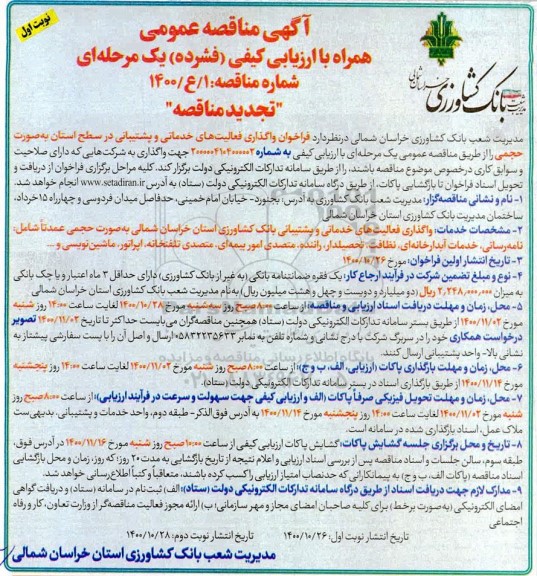 نوبت اول
آگهی مناقصه عمومی
همراه با ارزیابی کیفی (فشرده) یک مرحله‌ای
شماره مناقصه: ۱/ع/۱۴۰۰
"تجدید مناقصه"
بانک کشاورزی
مدیریت شعب بانک کشاورزی خراسان شمالی درنظر دارد فراخوان واگذاری فعالیت‌های خدماتی و پشتیبانی در سطح استان به‌صورت
حجمی را از طریق مناقصه عمومی یک مرحله‌ای با ارزیابی کیفی به شماره ۲۰۰۰۰۰۴۱۰۴۰۰۰۰۰۲ جهت واگذاری به شرکت‌هایی که دارای صلاحیت
و سوابق کاری درخصوص موضوع مناقصه باشند، را از طریق سامانه تدارکات الکترونیکی دولت برگزار کند. کلیه مراحل برگزاری فراخوان از دریافت و
تحویل اسناد فراخوان تا بازگشایی پاکات، از طریق درگاه سامانه تدارکات الکترونیکی دولت (ستاد) به آدرس www.setadiran.ir انجام خواهد شد.
۱- نام و نشانی مناقصه‌گزار: مدیریت شعب بانک کشاورزی به آدرس: بجنورد- خیابان امام خمینی، حدفاصل میدان فردوسی و چهارراه ۱۵ خرداد،
ساختمان مدیریت بانک کشاورزی استان خراسان شمالی
۲- مشخصات خدمات: واگذاری فعالیت‌های خدماتی و پشتیبانی بانک کشاورزی استان خراسان شمالی به‌صورت حجمی عمدتاً شامل:
نامه‌رسانی، خدمات آبدارخانه‌ای، نظافت، تحصیلدار، راننده، متصدی امور بیمه‌ای، متصدی تلفنخانه، اپراتور، ماشین‌نویسی و ...
۳- تاریخ انتشار اولین فراخوان: مورخ ۱۴۰۰/۱۰/۲۶
۴- نوع و مبلغ تضمین شرکت در فرآیند ارجاع کار: یک فقره ضمانتنامه بانکی (به غیر از بانک کشاورزی) دارای حداقل ۳ ماه اعتبار و یا چک بانکی
به میزان ۲,۲۴۸,۰۰۰,۰۰۰ ریال (دو میلیارد و دویست و چهل و هشت میلیون ریال) به نام مدیریت شعب بانک کشاورزی استان خراسان شمالی
۵- محل، زمان و مهلت دریافت اسناد ارزیابی و مناقصه: از ساعت ۸:۰۰ صبح روز سه‌شنبه مورخ ۱۴۰۰/۱۰/۲۸ لغایت ساعت ۱۴:۰۰ روز شنبه
مورخ ۱۴۰۰/۱۱/۰۲ از طریق بستر سامانه تدارکات الکترونیکی دولت (ستاد) همچنین مناقصه‌گران می‌بایست حداکثر تا تاریخ ۱۴۰۰/۱۱/۰۲ تصویر
درخواست همکاری خود را در سربرگ شرکت با درج نشانی و شماره تلفن به نمابر ۰۵۸۳۲۲۳۵۶۳۳ ارسال و اصل آن را با پست سفارشی پیشتاز به
نشانی بالا- واحد پشتیبانی ارسال کنند.
۶- محل، زمان و مهلت بارگذاری پاکات (ارزیابی، الف، ب و ج): از ساعت ۸:۰۰ صبح روز شنبه مورخ ۱۴۰۰/۱۱/۰۲ لغایت ساعت ۱۴:۰۰ روز پنجشنبه
مورخ ۱۴۰۰/۱۱/۱۴ از طریق بارگذاری اسناد در بستر سامانه تدارکات الکترونیکی دولت (ستاد).
۷- محل، زمان و مهلت تحویل فیزیکی صرفاً پاکات (الف و ارزیابی کیفی جهت سهولت و سرعت در فرآیند ارزیابی): از ساعت ۸:۰۰ صبح روز
شنبه مورخ ۱۴۰۰/۱۱/۰۲ لغایت ساعت ۱۴:۰۰ روز پنجشنبه مورخ ۱۴۰۰/۱۱/۱۴ به آدرس فوق‌الذکر- طبقه دوم، واحد خدمات و پشتیبانی. بدیهی‌ست
ملاک عمل، اسناد بارگذاری شده در سامانه است.
۸- تاریخ و محل برگزاری جلسه گشایش پاکات: گشایش پاکات ارزیابی کیفی از ساعت ۱۰:۰۰ صبح روز شنبه مورخ ۱۴۰۰/۱۱/۱۶ در آدرس فوق،
طبقه سوم، سالن جلسات و اسناد مناقصه پس از بررسی اسناد ارزیابی و اعلام نتیجه از تاریخ بازگشایی به مدت ۲۰ روز؛ که روز، زمان و محل بازگشایی
اسناد مناقصه (پاکات الف، ب و ج) به پیمانکارانی که حدنصاب امتیاز ارزیابی را کسب کرده باشند، متعاقباً و کتباً اطلاع‌رسانی خواهد شد.
۹- مدارک لازم جهت دریافت اسناد از طریق درگاه سامانه تدارکات الکترونیکی دولت (ستاد): الف) ثبت‌نام در سامانه (ستاد) و دریافت گواهی
امضای الکترونیکی (به‌صورت برخط) برای کلیه صاحبان امضای مجاز و مهر سازمانی؛ ب) ارائه مجوز فعالیت مناقصه‌گر از وزارت تعاون، کار و رفاه
اجتماعی
تاریخ انتشار نوبت اول: ۱۴۰۰/۱۰/۲۶ تاریخ انتشار نوبت دوم: ۱۴۰۰/۱۰/۲۸
مدیریت شعب بانک کشاورزی استان خراسان شمالی